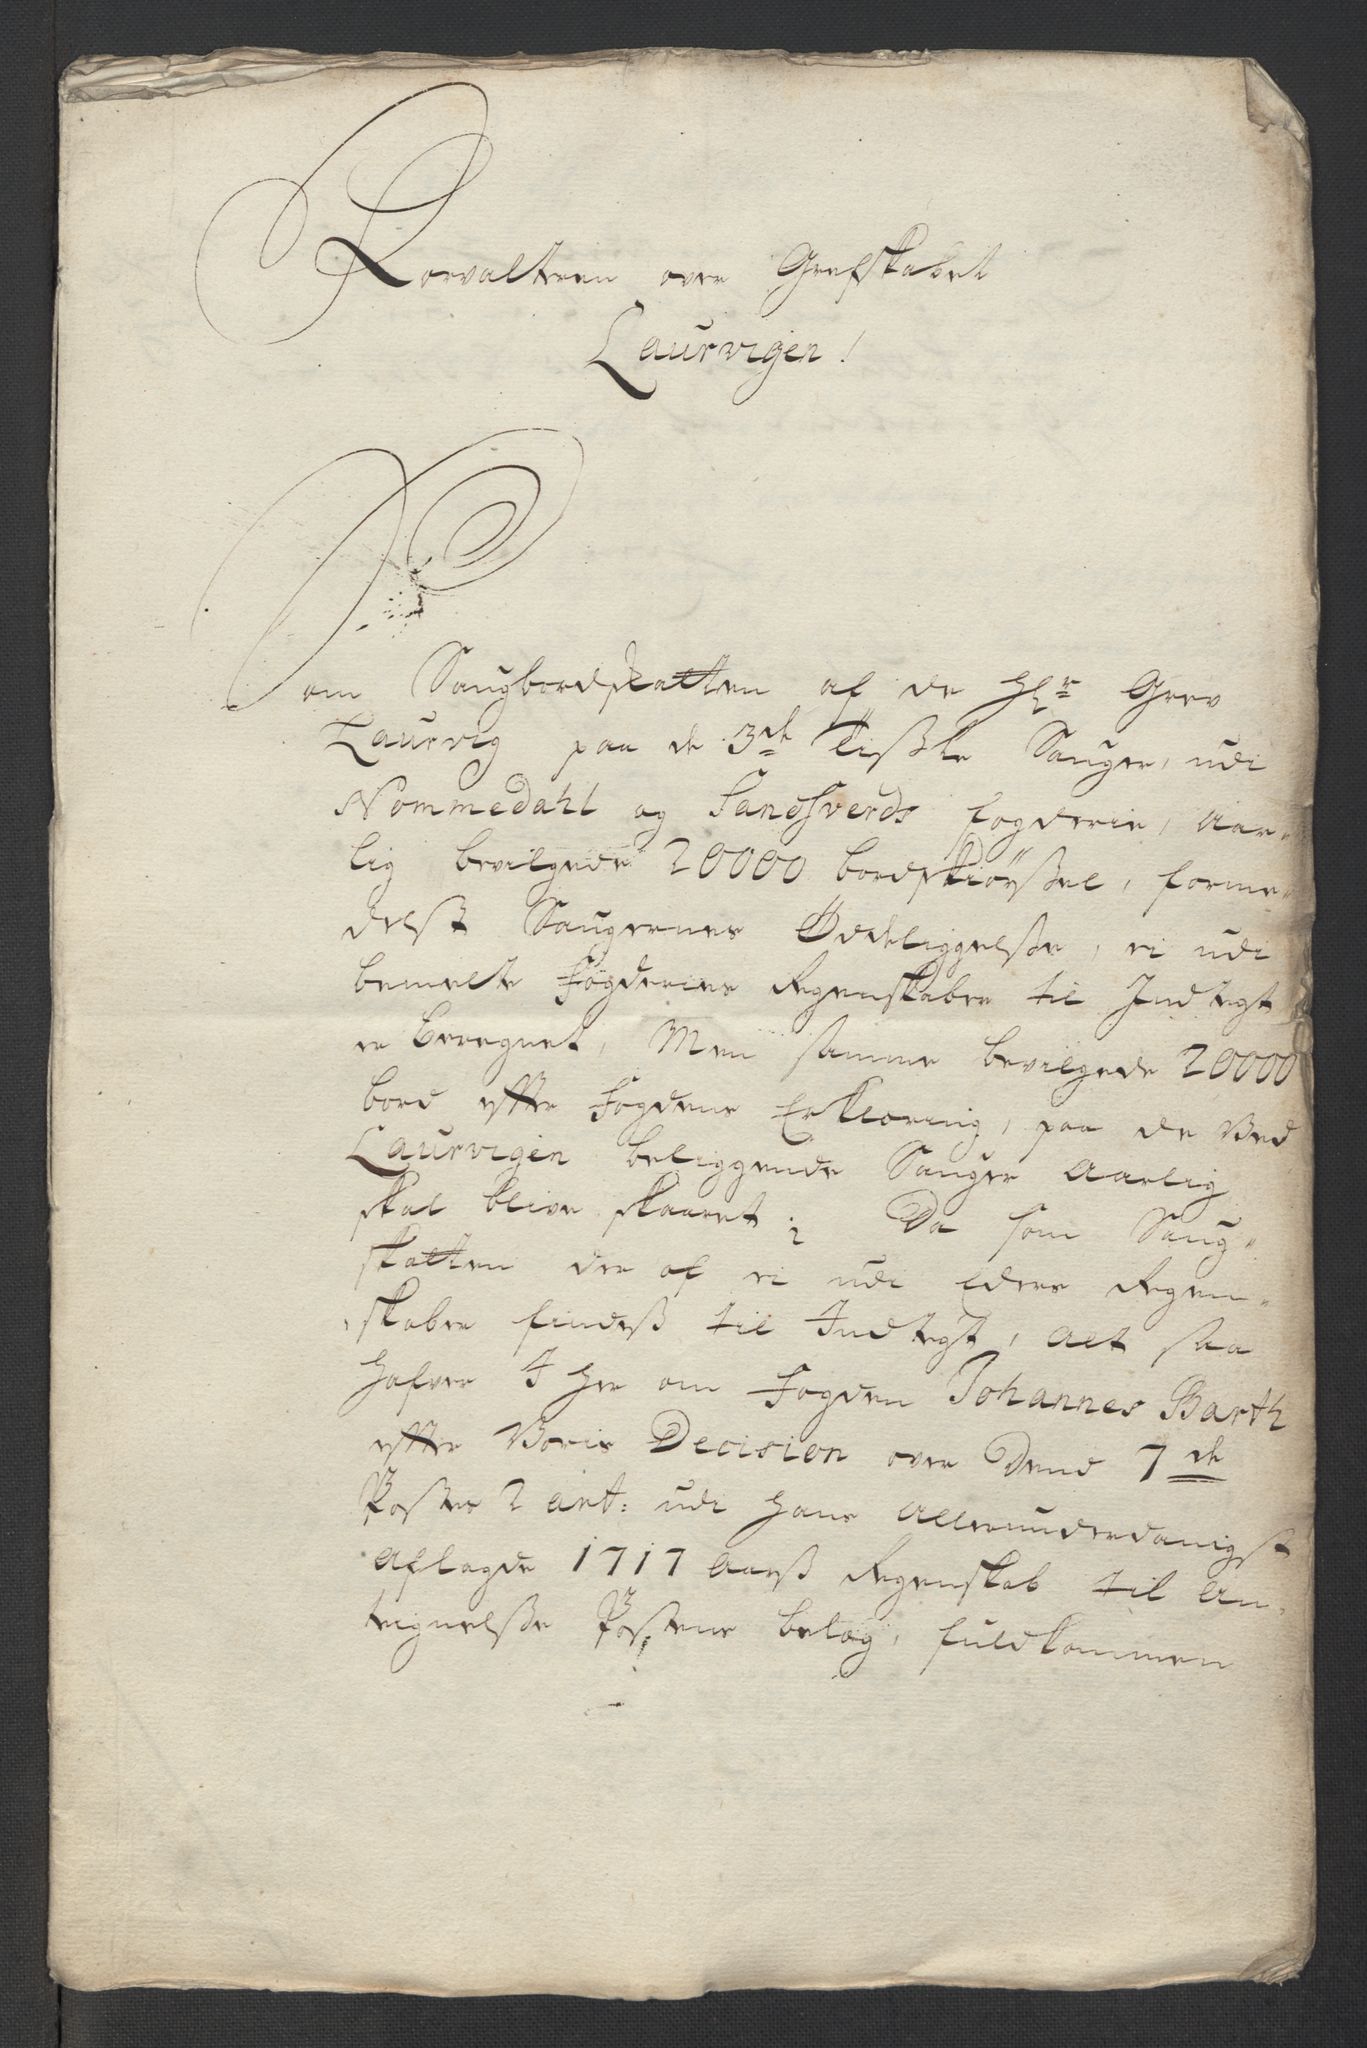 Forvalteren over Grefskabet
Laurvigen!
Som Saugbordskatten af de Hr Grev
Laurvig paa de 3de Tißle Sauger, udi
Nommedahl og Sandsverds fogderie, aar-
lig bevilgede 20000 bordskiørßel, forme-
delst Saugernes Ødeliggelße, ei udi
bemelte Fogderies Regenskaber til Indtegt
er Beregnet, Men samme bevilgede 20000
bord efter Fogdens Erklæring, paa de Ved
Laurvigen beliggende Sauger aarlig
skal blive skaaret; Da som Saug-
skatten der af ei udi Eders Regen-
skaber findeß til Indtegt, alt saa
hafver I her om Fogden Johannes Barth
efter Voris Decision over Dend 7de
Postes 2 art: udi hans allerunderdanigst
aflagde 1717 aarß Regenskab til an-
tegnelße Postens belæg, fuldkommen